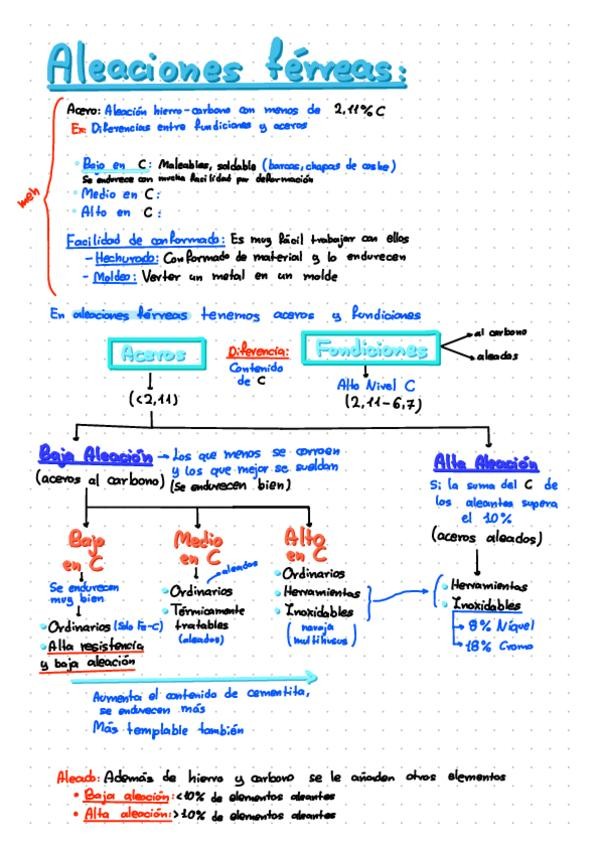 Aleaciones férreas:
meh
Acero: Aleación hierro-carbono con menos de 2,11% C
Ex: Diferencias entre fundiciones y aceros
Bajo en C: Maleables, soldable (barcos, chapas de coche)
Se endurece con mucha facilidad por deformación
Medio en C:
Alto en C:
Facilidad de conformado: Es muy fácil trabajar con ellos
- Hechurado: Conformado de material y lo endurecen
- Moldeo: Verter un metal en un molde
En aleaciones férreas tenemos aceros y fundiciones
Aceros
Diferencia:
Contenido
de C
Fundiciones
al carbono
aleados
(<2,11)
Alto Nivel C
(2,11-6,7)
Baja Aleación → Los que menos se corroen
y los que mejor se sueldan
(aceros al carbono) (se endurecen bien)
Alta Aleación
Si la suma del C de
los aleantes supera
el 10%
(aceros aleados)
Bajo
en C
Se endurecen
muy bien
Ordinarios (Sólo Fe-C)
Alta resistencia
y baja aleación
Medio
en C
aleados
Ordinarios
Térmicamente
tratables
(aleados)
Alto
en C
Ordinarios
Herramientas
Inoxidables
(navaja
multiusus)
Herramientas
Inoxidables
8% Níquel
18% Cromo
Aumenta el contenido de cementita,
se endurecen más
Más templable también
Aleado: Además de hierro y carbono se le añaden otros elementos
• Baja aleación: <10% de elementos aleantes
• Alta aleación: >10% de elementos aleantes